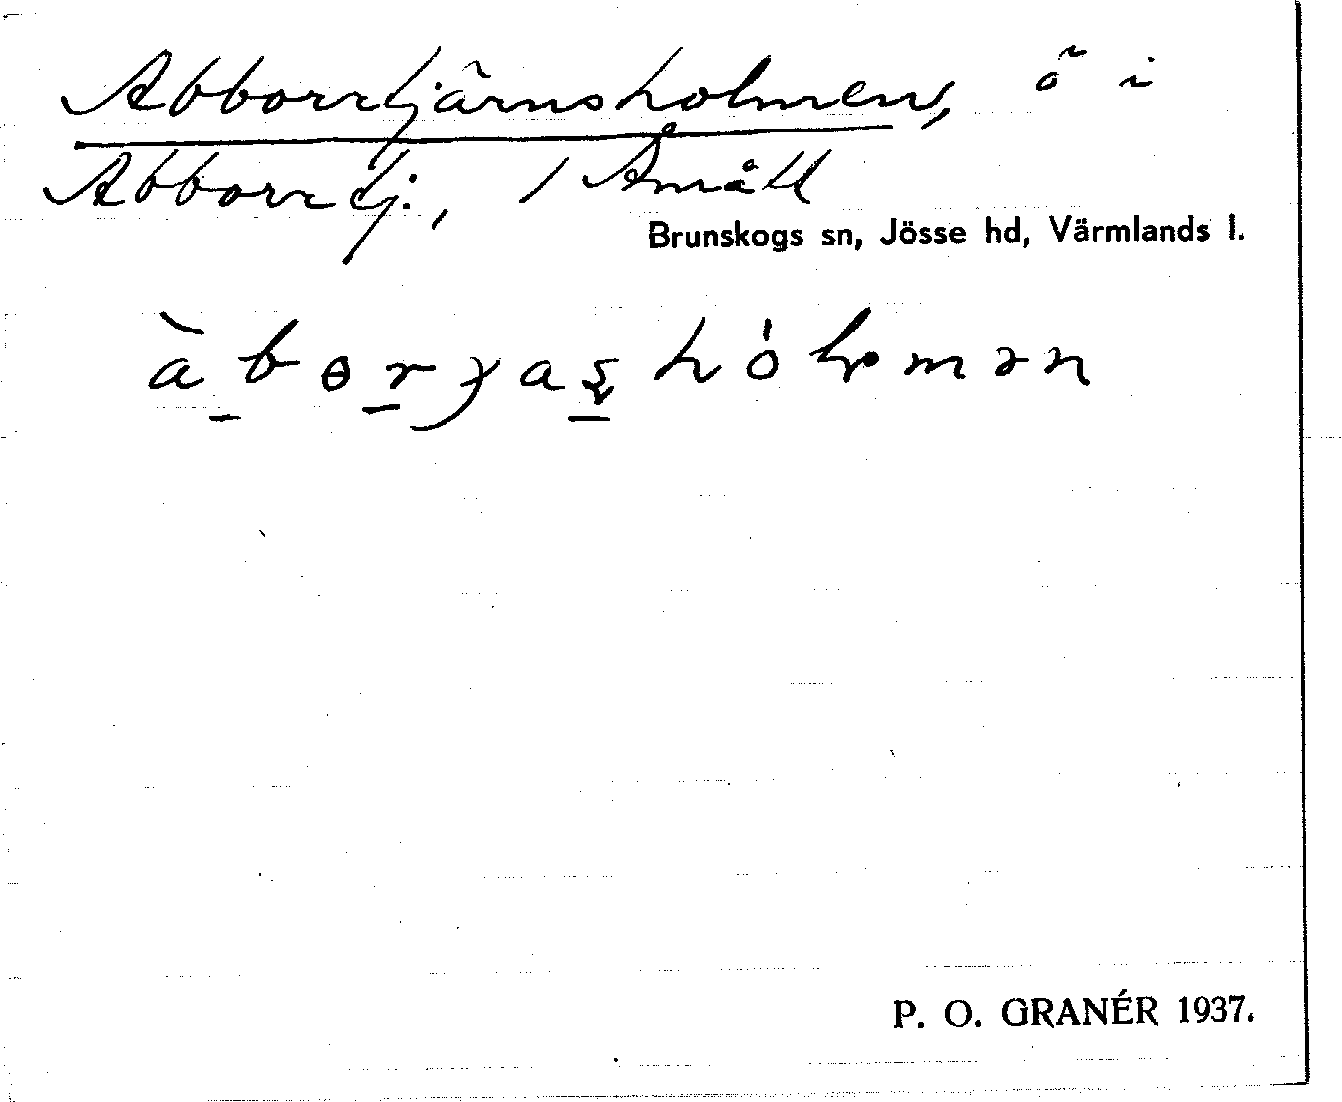 Abborrtjärnsholmen, ö i
Abborrtj., 1 Åmått
Brunskogs sn, Jösse hd, Värmlands l.
P. O. GRANÉR 1937.